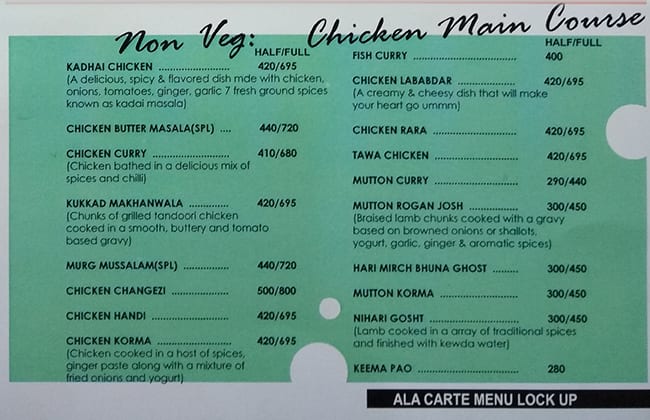 Non Veg: Chicken Main Course
HALF/FULL
KADHAI CHICKEN ........................ 420/695
(A delicious, spicy & flavored dish mde with chicken,
onions, tomatoes, ginger, garlic 7 fresh ground spices
known as kadai masala)
CHICKEN BUTTER MASALA(SPL) .... 440/720
CHICKEN CURRY ........................ 410/680
(Chicken bathed in a delicious mix of
spices and chilli)
KUKKAD MAKHANWALA ............... 420/695
(Chunks of grilled tandoori chicken
cooked in a smooth, buttery and tomato
based gravy)
MURG MUSSALAM(SPL) ................ 440/720
CHICKEN CHANGEZI .................... 500/800
CHICKEN HANDI ........................ 420/695
CHICKEN KORMA ........................ 420/695
(Chicken cooked in a host of spices,
ginger paste along with a mixture of
fried onions and yogurt)
HALF/FULL
FISH CURRY ................................ 400
CHICKEN LABABDAR .................... 420/695
(A creamy & cheesy dish that will make
your heart go ummm)
CHICKEN RARA ........................ 420/695
TAWA CHICKEN ........................ 420/695
MUTTON CURRY ........................ 290/440
MUTTON ROGAN JOSH ................ 300/450
(Braised lamb chunks cooked with a gravy
based on browned onions or shallots,
yogurt, garlic, ginger & aromatic spices)
HARI MIRCH BHUNA GHOST ......... 300/450
MUTTON KORMA ........................ 300/450
NIHARI GOSHT ............................ 300/450
(Lamb cooked in a array of traditional spices
and finished with kewda water)
KEEMA PAO ................................ 280
ALA CARTE MENU LOCK UP